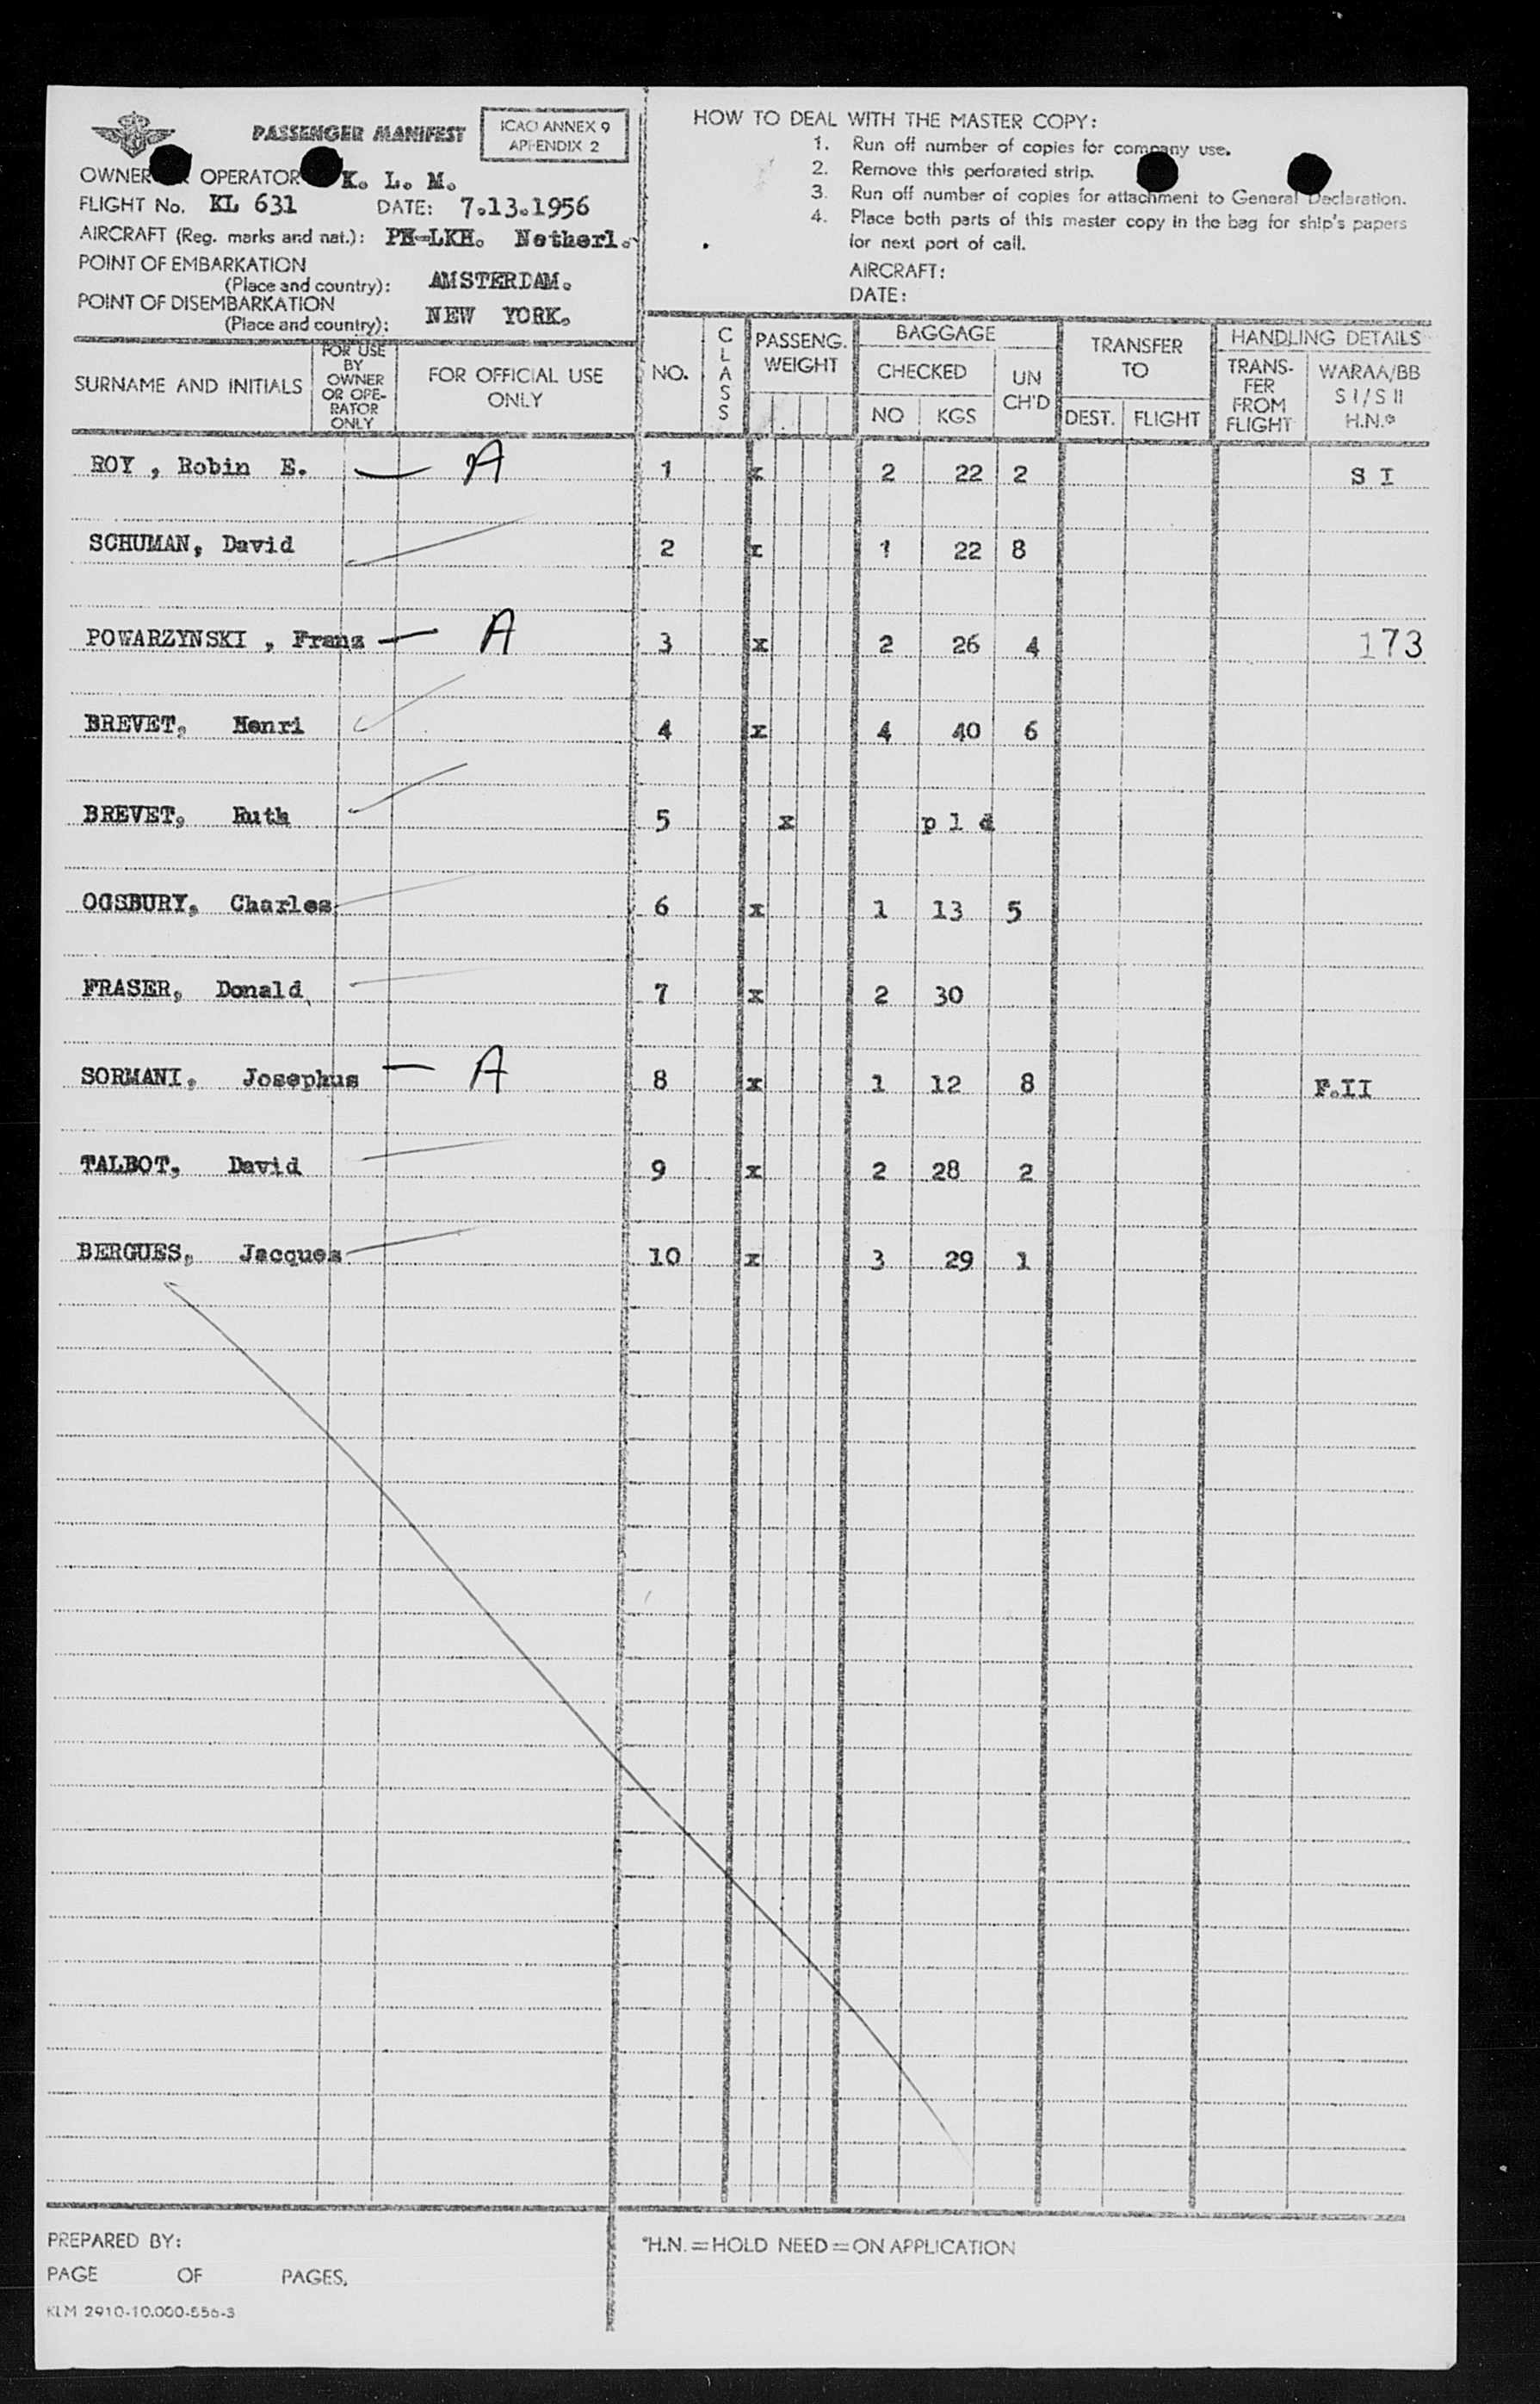 PASSENGER MANIFEST
ICAO ANNEX 9
APPENDIX 2
OWNER OPERATOR K. L. M.
FLIGHT No. KL 631 DATE: 7.13.1956
AIRCRAFT (Reg. marks and nat.): PH-LKH. Netherl.
POINT OF EMBARKATION
(Place and country): AMSTERDAM.
POINT OF DISEMBARKATION
(Place and country): NEW YORK.
HOW TO DEAL WITH THE MASTER COPY:
1. Run off number of copies for company use.
2. Remove this perforated strip.
3. Run off number of copies for attachment to General Declaration.
4. Place both parts of this master copy in the bag for ship's papers
for next port of call.
AIRCRAFT:
DATE:
SURNAME AND INITIALS
FOR USE
BY
OWNER
OR OPE-
RATOR
ONLY
FOR OFFICIAL USE
ONLY
NO.
CLASS
PASSENG.
WEIGHT
BAGGAGE
CHECKED
NO KGS
UN
CH'D
TRANSFER
TO
DEST. FLIGHT
HANDLING DETAILS
TRANS-
FER
FROM
FLIGHT
WARAA/BB
S I/S II
H.N.*
ROY , Robin E. — A 1 x 2 22 2 S I
SCHUMAN, David 2 x 1 22 8
POWARZYNSKI , Franz — A 3 x 2 26 4 173
BREVET, Henri 4 x 4 40 6
BREVET, Ruth 5 x p l d
OGSBURY, Charles 6 x 1 13 5
FRASER, Donald 7 x 2 30
SORMANI, Josephus — A 8 x 1 12 8 F.II
TALBOT, David 9 x 2 28 2
BERGUES, Jacques 10 x 3 29 1
PREPARED BY:
PAGE OF PAGES.
KLM 2910-10.000-556-3
*H.N. = HOLD NEED = ON APPLICATION